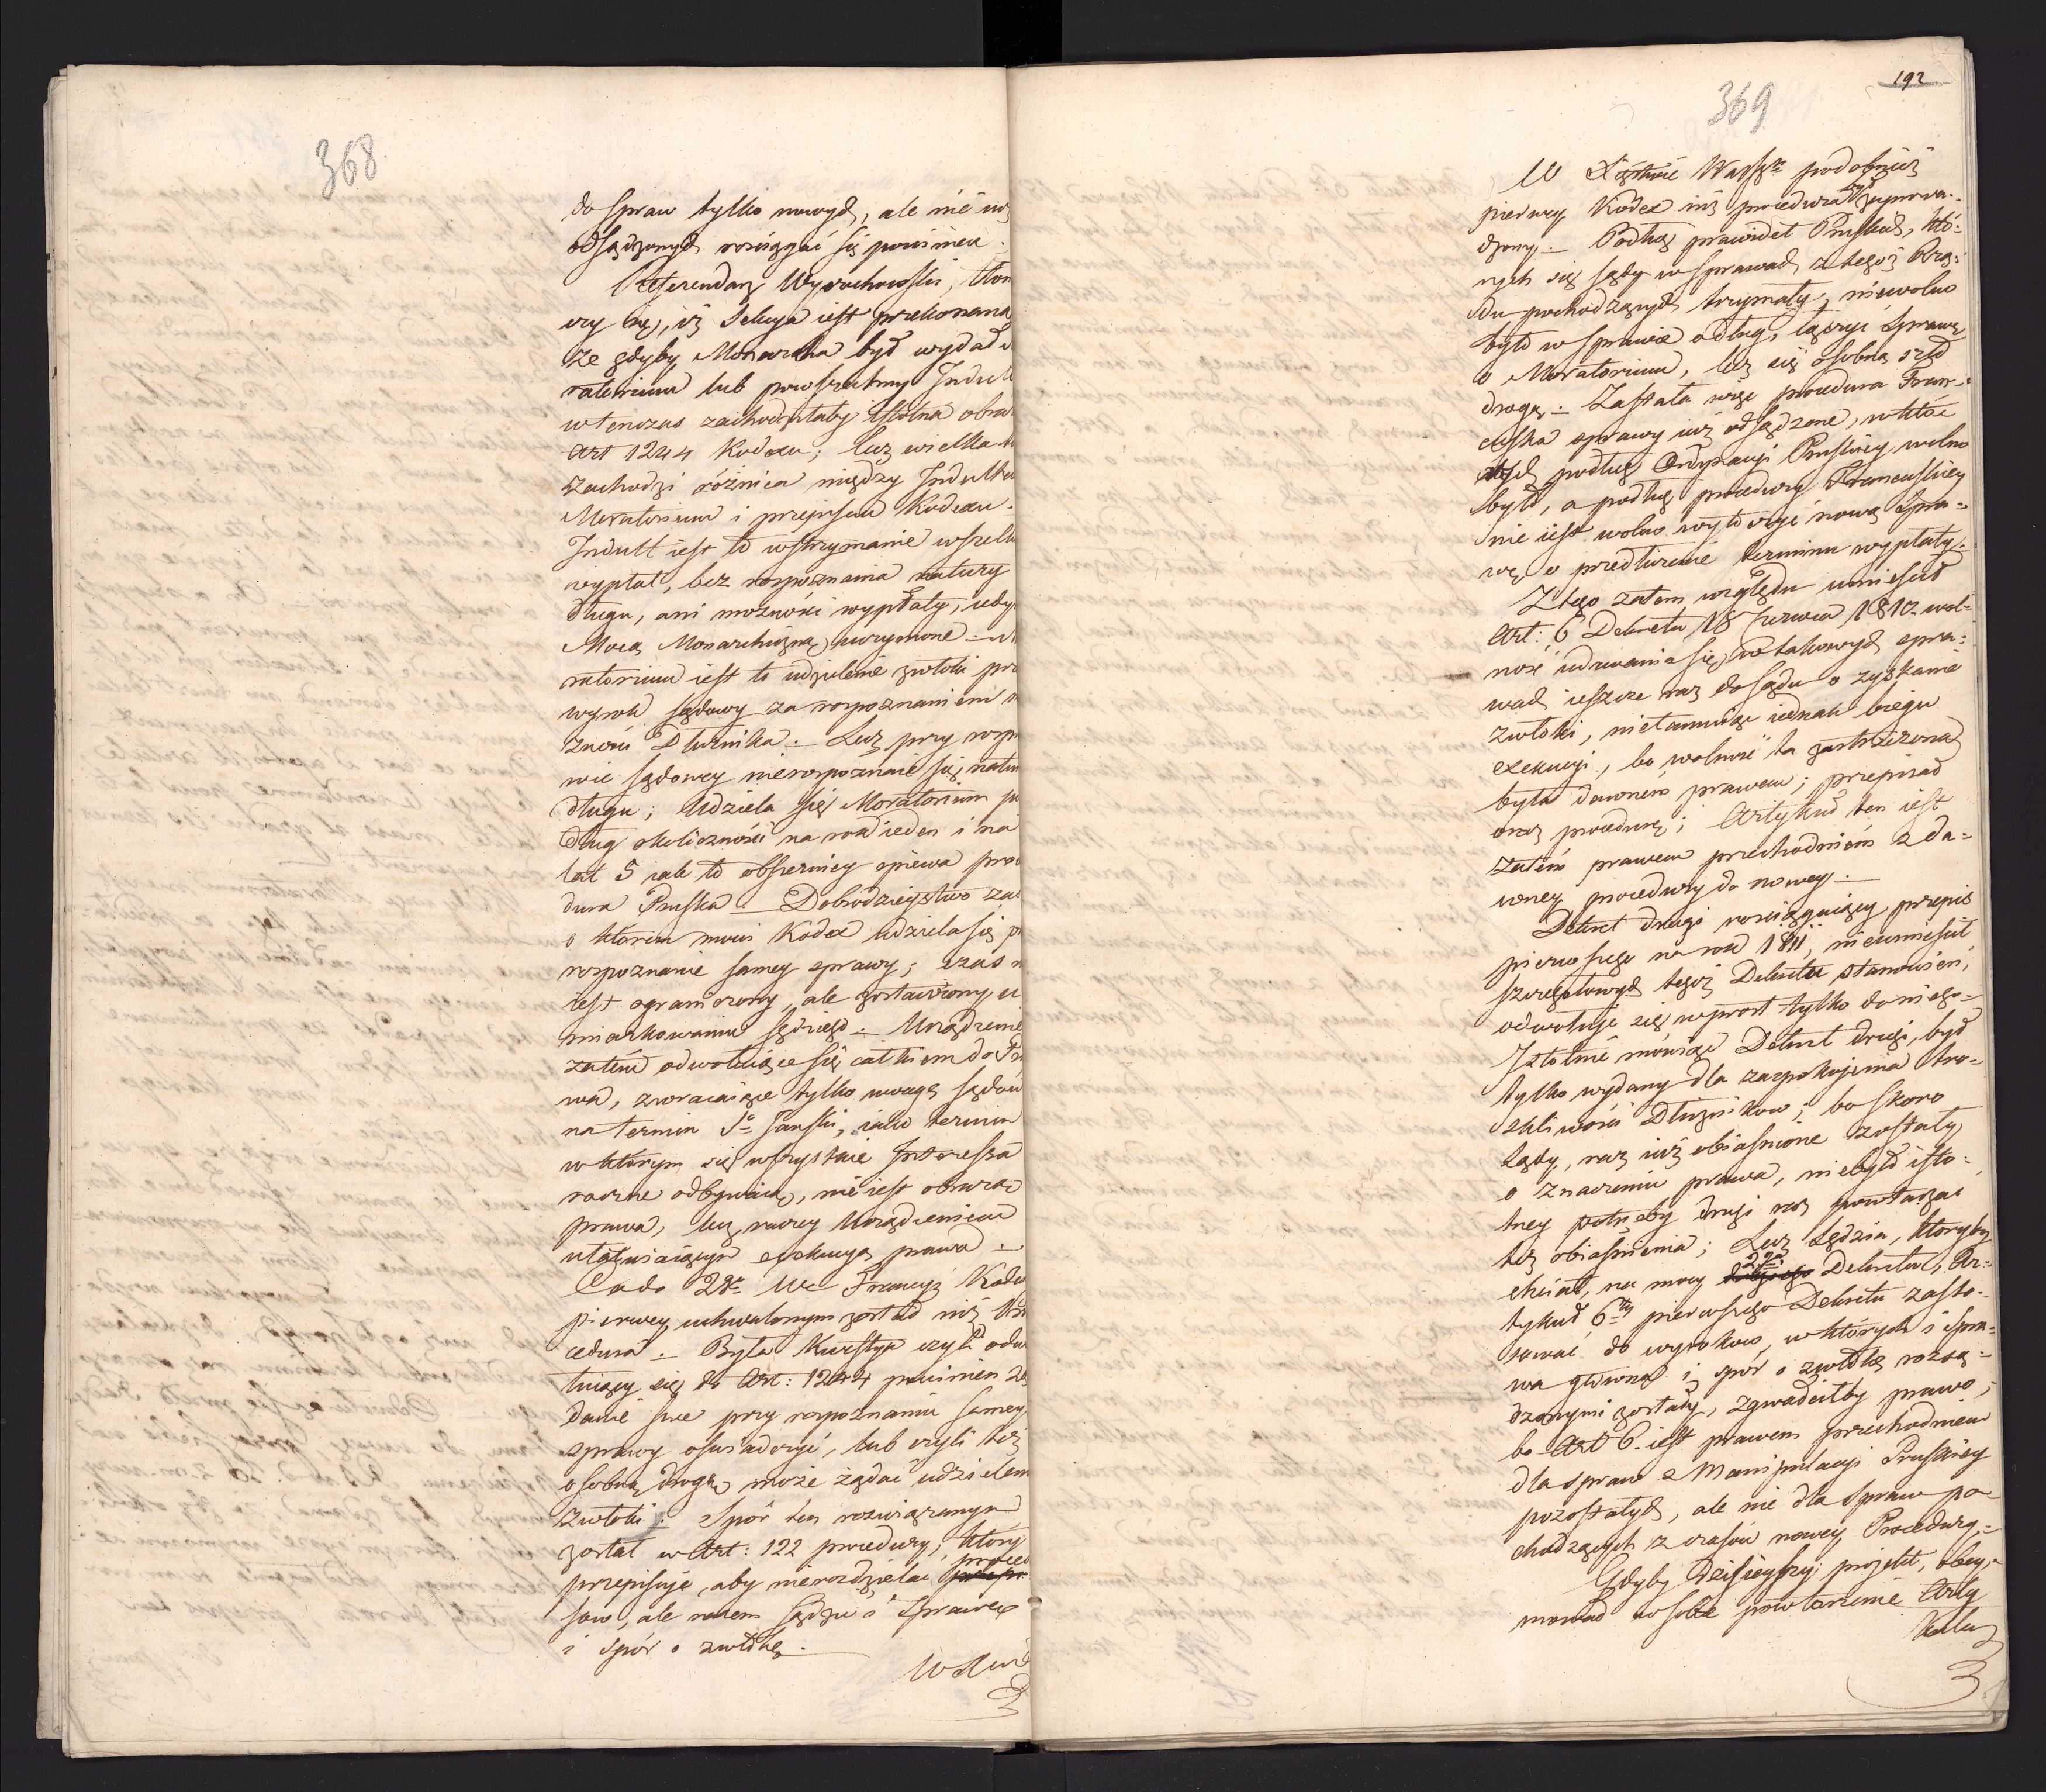 368
do spraw tylko nowych, ale nie iuż
odsądzonych rościągać się powinien.
Referendarz Wyczechowski, tłom
czy się, iż Sekcya iest przekonaną
że gdyby Monarcha był wydał
ratorium lub powszechny Indult
wtenczas zachodziłaby istotna obra
Art 1244 Kodexu; lecz wielka
zachodzi różnica między Indultem
Moratorium i przepisem Kodexu.
Indult iest to wstrzymanie wszelk
wypłat, bez rozpoznania natury
długu, ani możności wypłaty, iedy
Mocą Monarchiczną uczynione
ratorium iest to udzielenie zwłoki prz
wyrok sądowy za rozpoznaniem
żności Dłużnika. Lecz przy rozpr
wie sądowey nierozpoznaie się natu
długu; Udziela się Moratorium po
dług okoliczności na rok ieden i na
lat 5 iak to obszerniey opiewa proce
dura Pruska. Dobrodzieystwo zaś
o którem mówi Kodex udziela się p
rozpoznanie samey sprawy; czas n
iest ograniczony, ale zostawiony u
miarkowaniu sędziego. Urządzenie
zatém odwołuiące się całkiem do Pr
wa, zwracaiące tylko uwagę sądów
na termin S° Jański, iako termin
w którym się wszystkie Interessa
roczne odbywaią, nie iest obrazą
prawa, lecz raczey Urządzeniem
ułatwiaiącym exekucyą prawa.
Co do 2go We Francyi Kode
pierwey uchwalonym został niż Pro
cedura. Była Kwestya czyli odwo
łuiący się do Art: 1244 powinien żą
danie swe przy rozpoznaniu samey
sprawy oświadczyć, lub czyli też
osobną drogą może żądać udzielen
zwłoki. Spór ten rozwiązanym
został w Art: 122 procedury, który
przepisuie, aby nierozdzielać proces
sów, ale razem sądzić i Sprawę
i spór o zwłokę.
W Xię
192
369
W Xięstwie Warszm podobnież
pierwey Kodex niż procedura był zaprowa-
dzony. Podług prawideł Pruskich, któ-
rych się sądy w sprawach z tegoż Rzą-
du pochodzących trzymały, niewolno
było w sprawie o dług, łączyć Sprawę
o Moratorium, lecz się osobną szło
drogą. Zastała więc procedura Fran-
cuska sprawy iuż odsądzone, w któ-
rych podług Ordynacyi Pruskiey wolno
było, a podług procedury Francuskiey
nie iest wolno wytoczyć nową Spra-
wę o przedłużenie terminu wypłaty.
Z tego zatem względu umieścił
Art: 6 Dekretu 18 Czerwca 1810 wol-
ność udawania się w takowych spra-
wach ieszcze raz do Sądu o zyskanie
zwłoki, nietamuiąc iednak biegu
exekucyi, bo wolność ta zastrzeżoną
była dawném prawem; przepisał
oraz procedurę; Artykuł ten iest
zatém prawem przechodniém z da-
wney procedury do nowey.
Dekret drugi rościągaiący przepis
pierwszego na rok 1811, nieumieścił
szczegółowych tegoż Dekretu stanowień,
odwołuie się wprost tylko do niego.
Istotnie mówiąc Dekret drugi, był
tylko wydany dla zaspokoienia tro-
skliwości Dłużników; bo skoro
Sądy, raz iuż obiaśnione zostały
o znaczeniu prawa, niebyło isto-
tney potrzeby drugi raz powtarzać
też obiaśnienia; Lecz Sędzia, któryby
chciał, na mocy 2go Dekretu, Ar-
tykuł 6ty pierwszego Dekretu zasto-
sować do wyroków, w których i spra-
wa główna i spór o zwłokę rozsą-
dzonymi zostały, zgwałciłby prawo,
bo Art 6. iest prawem przechodniem
dla spraw z Manipulacyi Pruskiey
pozostałych, ale nie dla spraw po-
chodzących z czasów nowey Procedury.
Gdyby dzisieyszy proiekt, obey-
mował w sobie powtórzenie Arty
kułu